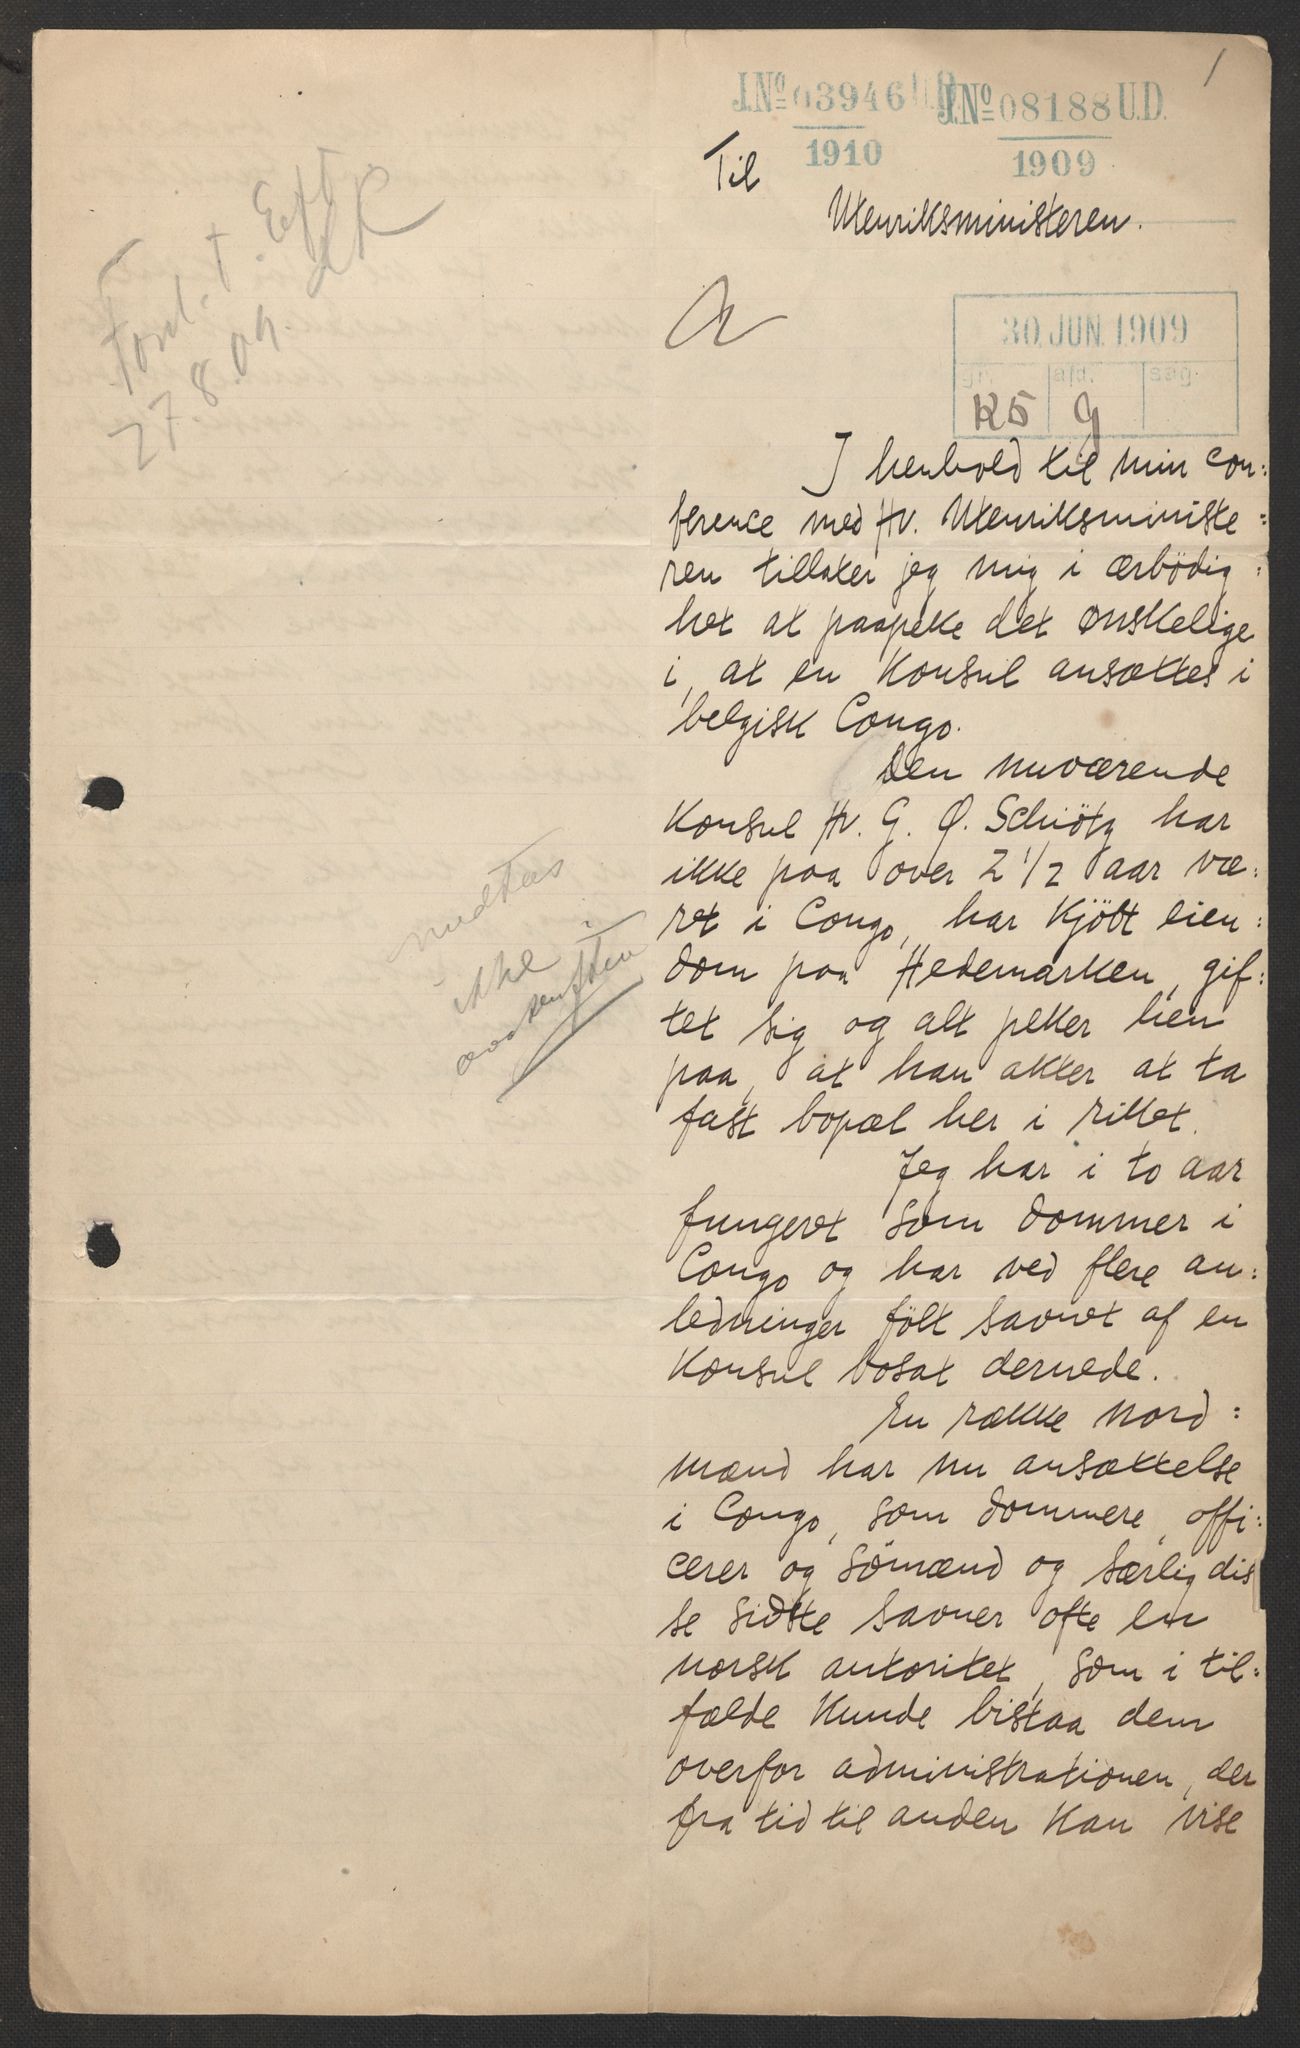 1
J.No 03946 U.D.
1910
J.No 08188 U.D.
1909
Til
Utenriksministeren.
30. JUN. 1909
gr. afd. sag.
K5 g
Ford. t. Eft.
27.8.09.
I henhold til min con:
ference med Hr. Utenriksministe:
ren tillater jeg mig i ærbødig:
het at paapeke det ønskelige
i, at en Konsul ansættes i
belgisk Congo.
Den nuværende
Konsul Hr. G. Q. Schiötz har
ikke paa over 2 1/2 aar væ:
ret i Congo, har kjöbt eien:
dom paa Hedemarken, gif:
tet sig og alt peker hen
paa, at han akter at ta
fast bopæl her i riket.
Jeg har i to aar
fungeret som dommer i
Congo og har ved flere an:
ledninger fölt savnet af en
Konsul bosat dernede.
En række nord:
mænd har nu ansættelse
i Congo, som dommere, offi:
cerer og sömænd og særlig dis
se sidste savner ofte en
norsk autoritet, som i til:
fælde kunde bistaa dem
overfor administrationen, der
fra tid til anden kan vise
medtas
ikke i
oversigten